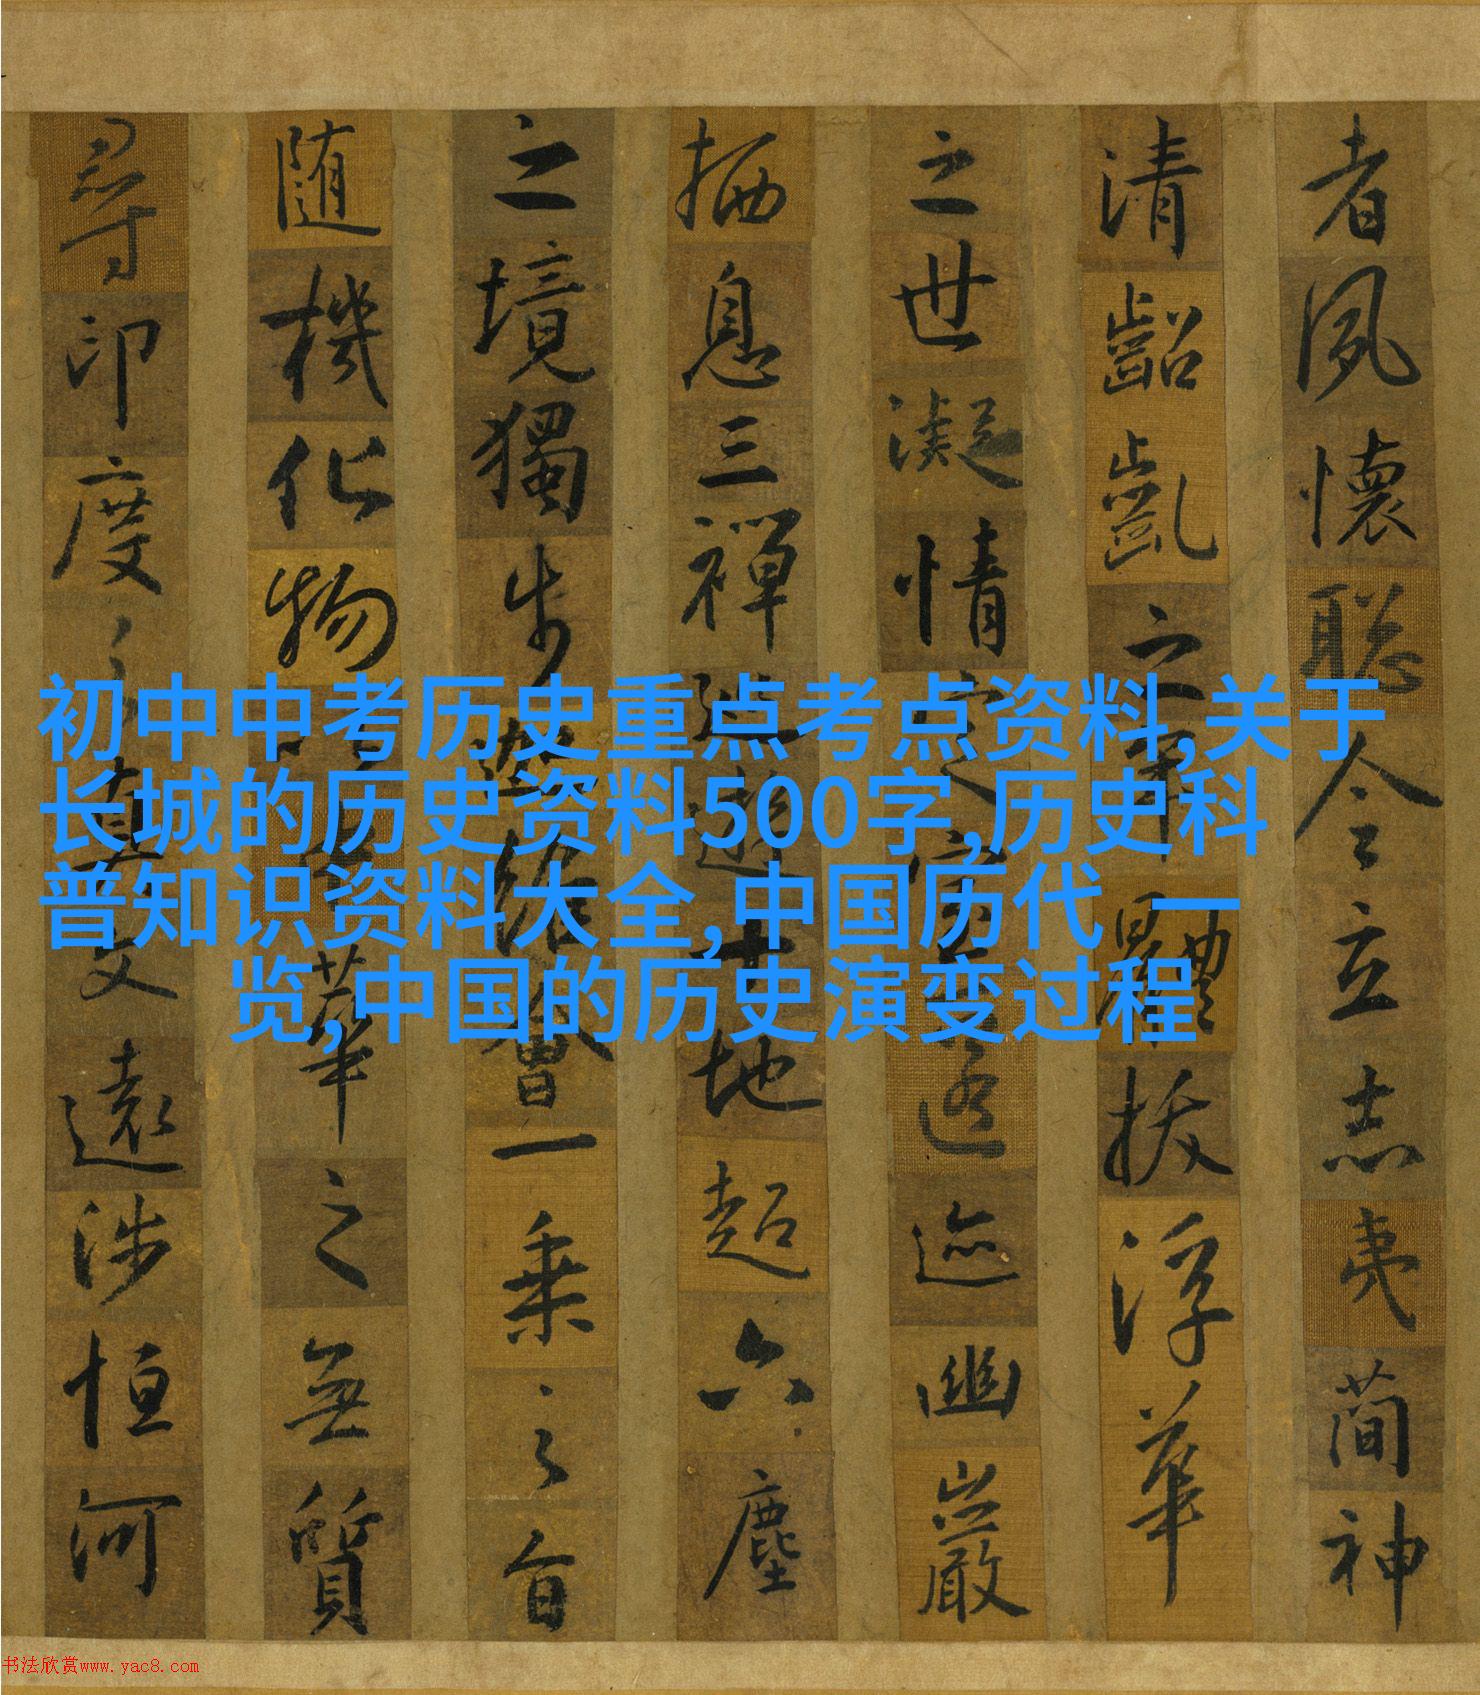 初中中考历史重点考点资料,关于
长城的历史资料500字,历史科
普知识资料大全,中国历代 一
览,中国的历史演变过程
者夙懷聡令立志夷簡神
清齠齔之年體拔浮華
之世凝情定室匿迹幽巖
栖息三禪巡遊十地超六塵
之境獨步迦維會一乗之旨
随機化物以中華之無質
尋印度之真文遠涉恒河
书法欣赏www.yac8.com